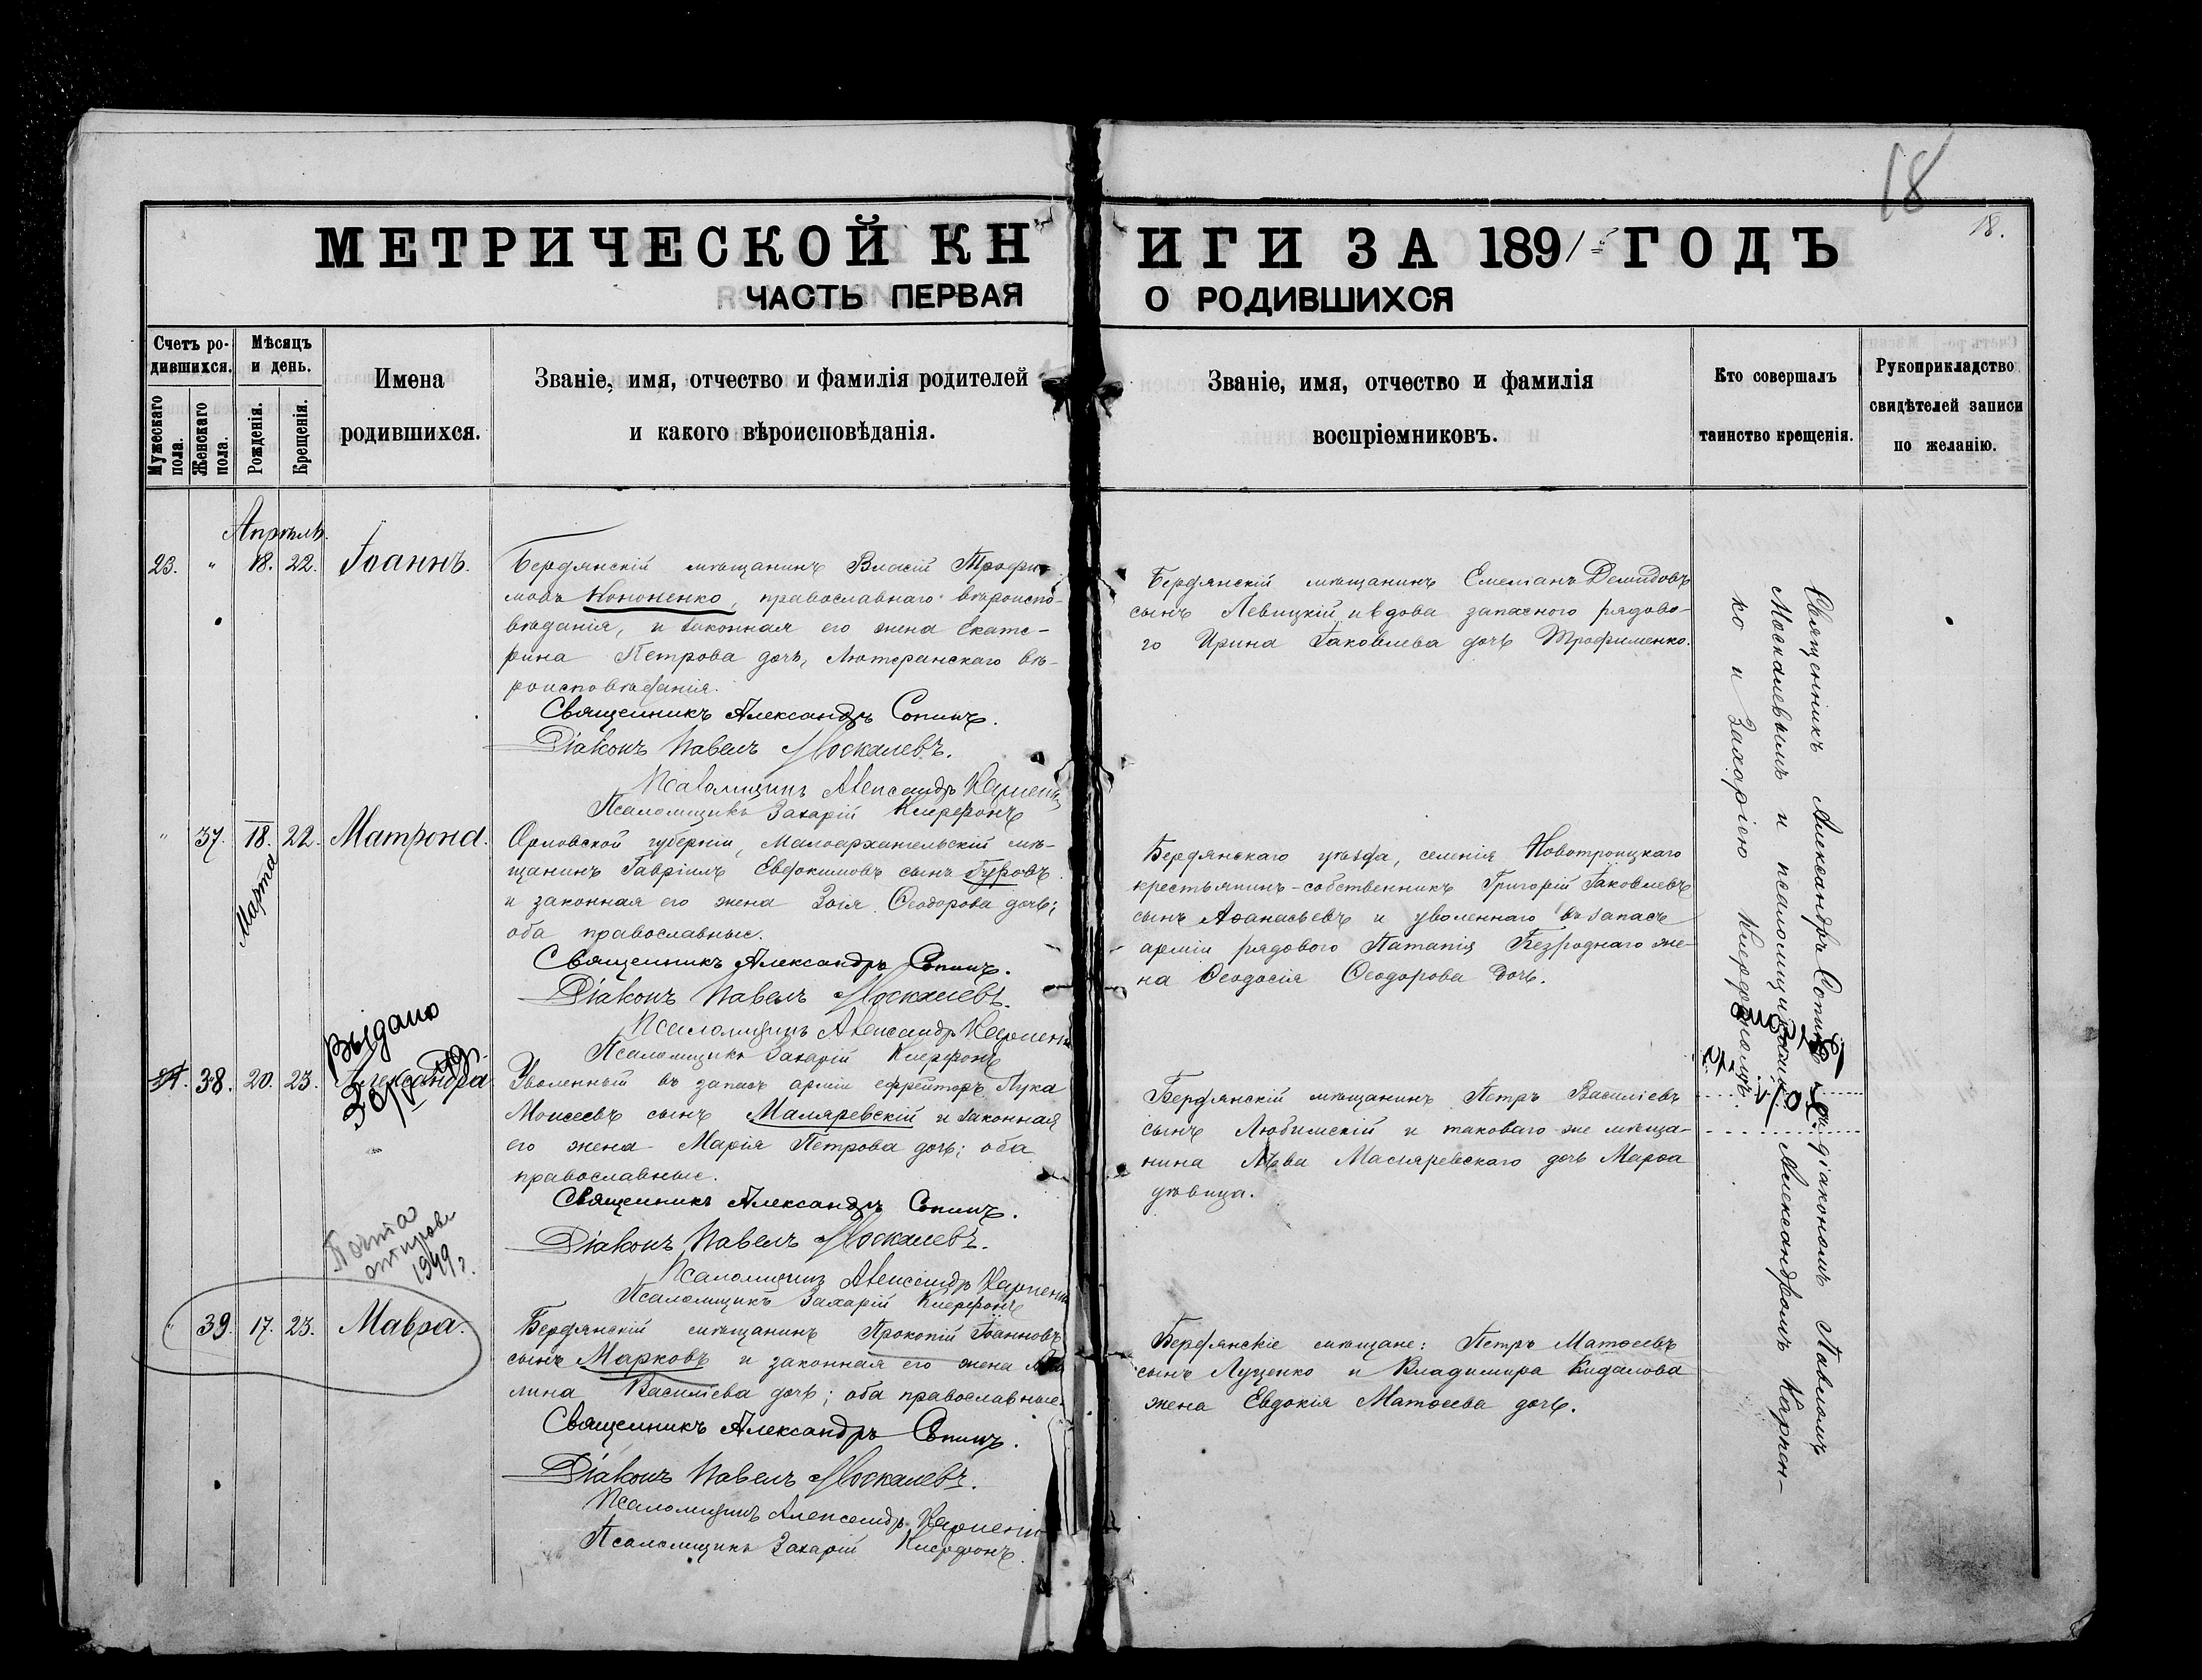 18
18.
МЕТРИЧЕСКОЙ КНИГИ ЗА 1891 ГОДЪ
ЧАСТЬ ПЕРВАЯ О РОДИВШИХСЯ
Счетъ родившихся.
Мужескаго пола.
Женскаго пола.
Мѣсяцъ и день.
Рожденія.
Крещенія.
Имена
родившихся.
Званіе, имя, отчество и фамилія родителей
и какого вѣроисповѣданія.
Званіе, имя, отчество и фамилія
воспріемниковъ.
Кто совершалъ
таинство крещенія.
Рукоприкладство
свидѣтелей записи
по желанію.
Апрѣль.
23. " 18. 22. Іоаннъ.
Бердянскій мѣщанинъ Власій Трофи-
мовъ Кононенко, православнаго вѣроиспо-
вѣданія, и законная его жена Екате-
рина Петрова дочь, Лютеранскаго вѣ-
роисповѣданія.
Священникъ Александръ Сопинъ.
Діаконъ Павелъ Москалевъ.
Псаломщикъ Александръ Карпен
Псаломщикъ Захарій Ксерофонъ
Бердянскій мѣщанинъ Емеліанъ Демидовъ
сынъ Левицкій и вдова запаснаго рядово-
го Ирина Іаковлева дочь Трофименко.
" 37. 18. 22. Матрона.
Марта
Орловской губерніи, Малоархангельскій мѣ-
щанинъ Гавріилъ Евдокимовъ сынъ Гуровъ
и законная его жена Зоія Ѳеодорова дочь;
оба православные.
Священникъ Александръ Сопинъ.
Діаконъ Павелъ Москалевъ.
Псаломщикъ Александръ Карпен
Псаломщикъ Захарій
Бердянскаго уѣзда, селенія Новотроицкаго
крестьянинъ-собственникъ Григорій Іаковлевъ
сынъ Аѳанасьевъ и уволеннаго въ запасъ
арміи рядового Патапія Безроднаго же-
на Ѳеодосія Ѳеодорова дочь.
Выдано
38. 20. 23. Александра
Уволенный въ запасъ арміи ефрейторъ Лука
Моисеевъ сынъ Маляревскій и законная
его жена Марія Петрова дочь; оба
православные.
Священникъ Александръ Сопинъ.
Діаконъ Павелъ Москалевъ.
Псаломщикъ Александръ Карпен
Псаломщикъ Захарій
Бердянскій мѣщанинъ Петръ Василіевъ
сынъ Любимскій и таковаго же мѣща-
нина Льва Маляревскаго дочь Марѳа
дѣвица.
1949 г.
" 39. 17. 23. Мавра.
Бердянскій мѣщанинъ Прокопій Іоанновъ
сынъ Марковъ и законная его жена
лина Василіева дочь; оба православные.
Священникъ Александръ Сопинъ.
Діаконъ Павелъ Москалевъ.
Псаломщикъ Александръ Карпен
Псаломщикъ Захарій
Бердянскіе мѣщане: Петръ Матѳеевъ
сынъ Луценко и Владимира Кидалова
жена Евдокія Матѳеева дочь.
Священникъ Александръ Сопинъ съ діакономъ Павломъ
Москалевымъ и псаломщиками Александромъ Карпен-
ко и Захаріею